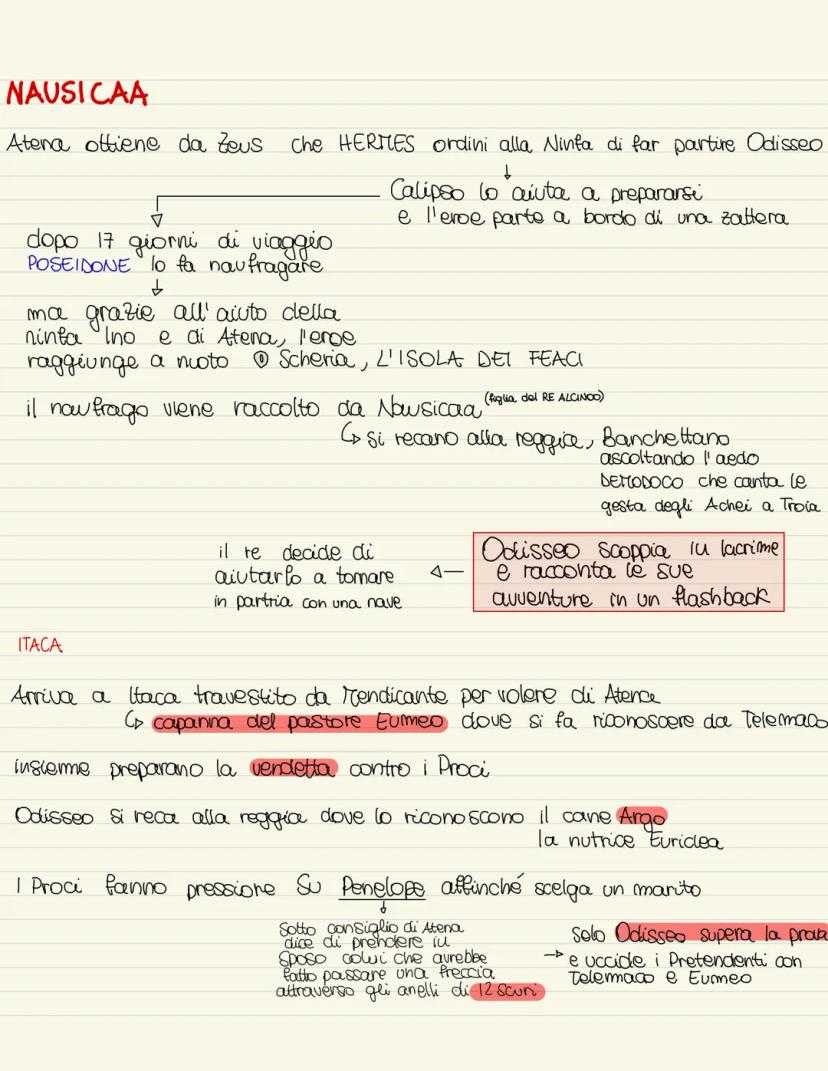 NAUSICAA
Atena ottiene da Zeus che HERMES ordini alla Ninfa di far partire Odisseo
Calipso lo aiuta a prepararsi
e l'eroe parte a bordo di una zattera
dopo 17 giorni di viaggio
POSEIDONE lo fa naufragare
ma grazie all'aiuto della
ninfa Ino e di Atena, l'eroe
raggiunge a nuoto Scheria, L'ISOLA DEI FEACI
il naufrago viene raccolto da Nausicaa (figlia del RE ALCINOO)
si recano alla reggia, Banchettano
ascoltando l'aedo
DEMODOCO che canta le
gesta degli Achei a Troia
Odisseo scoppia in lacrime
e racconta le sue
avventure in un flashback
il re decide di
aiutarlo a tornare
in partria con una nave
ITACA
Arriva a Itaca travestito da mendicante per volere di Atena
capanna del pastore Eumeo dove si fa riconoscere da Telemaco
insieme preparano la vendetta contro i Proci
Odisseo si reca alla reggia dove lo riconoscono il cane Argo
la nutrice Euriclea
I Proci fanno pressione su Penelope affinché scelga un marito
Sotto consiglio di Atena
dice di prendere in
sposo colui che avrebbe
fatto passare una freccia
attraverso gli anelli di 12 scuri
solo Odisseo supera la prova
e uccide i Pretendenti con
Telemaco e Eumeo